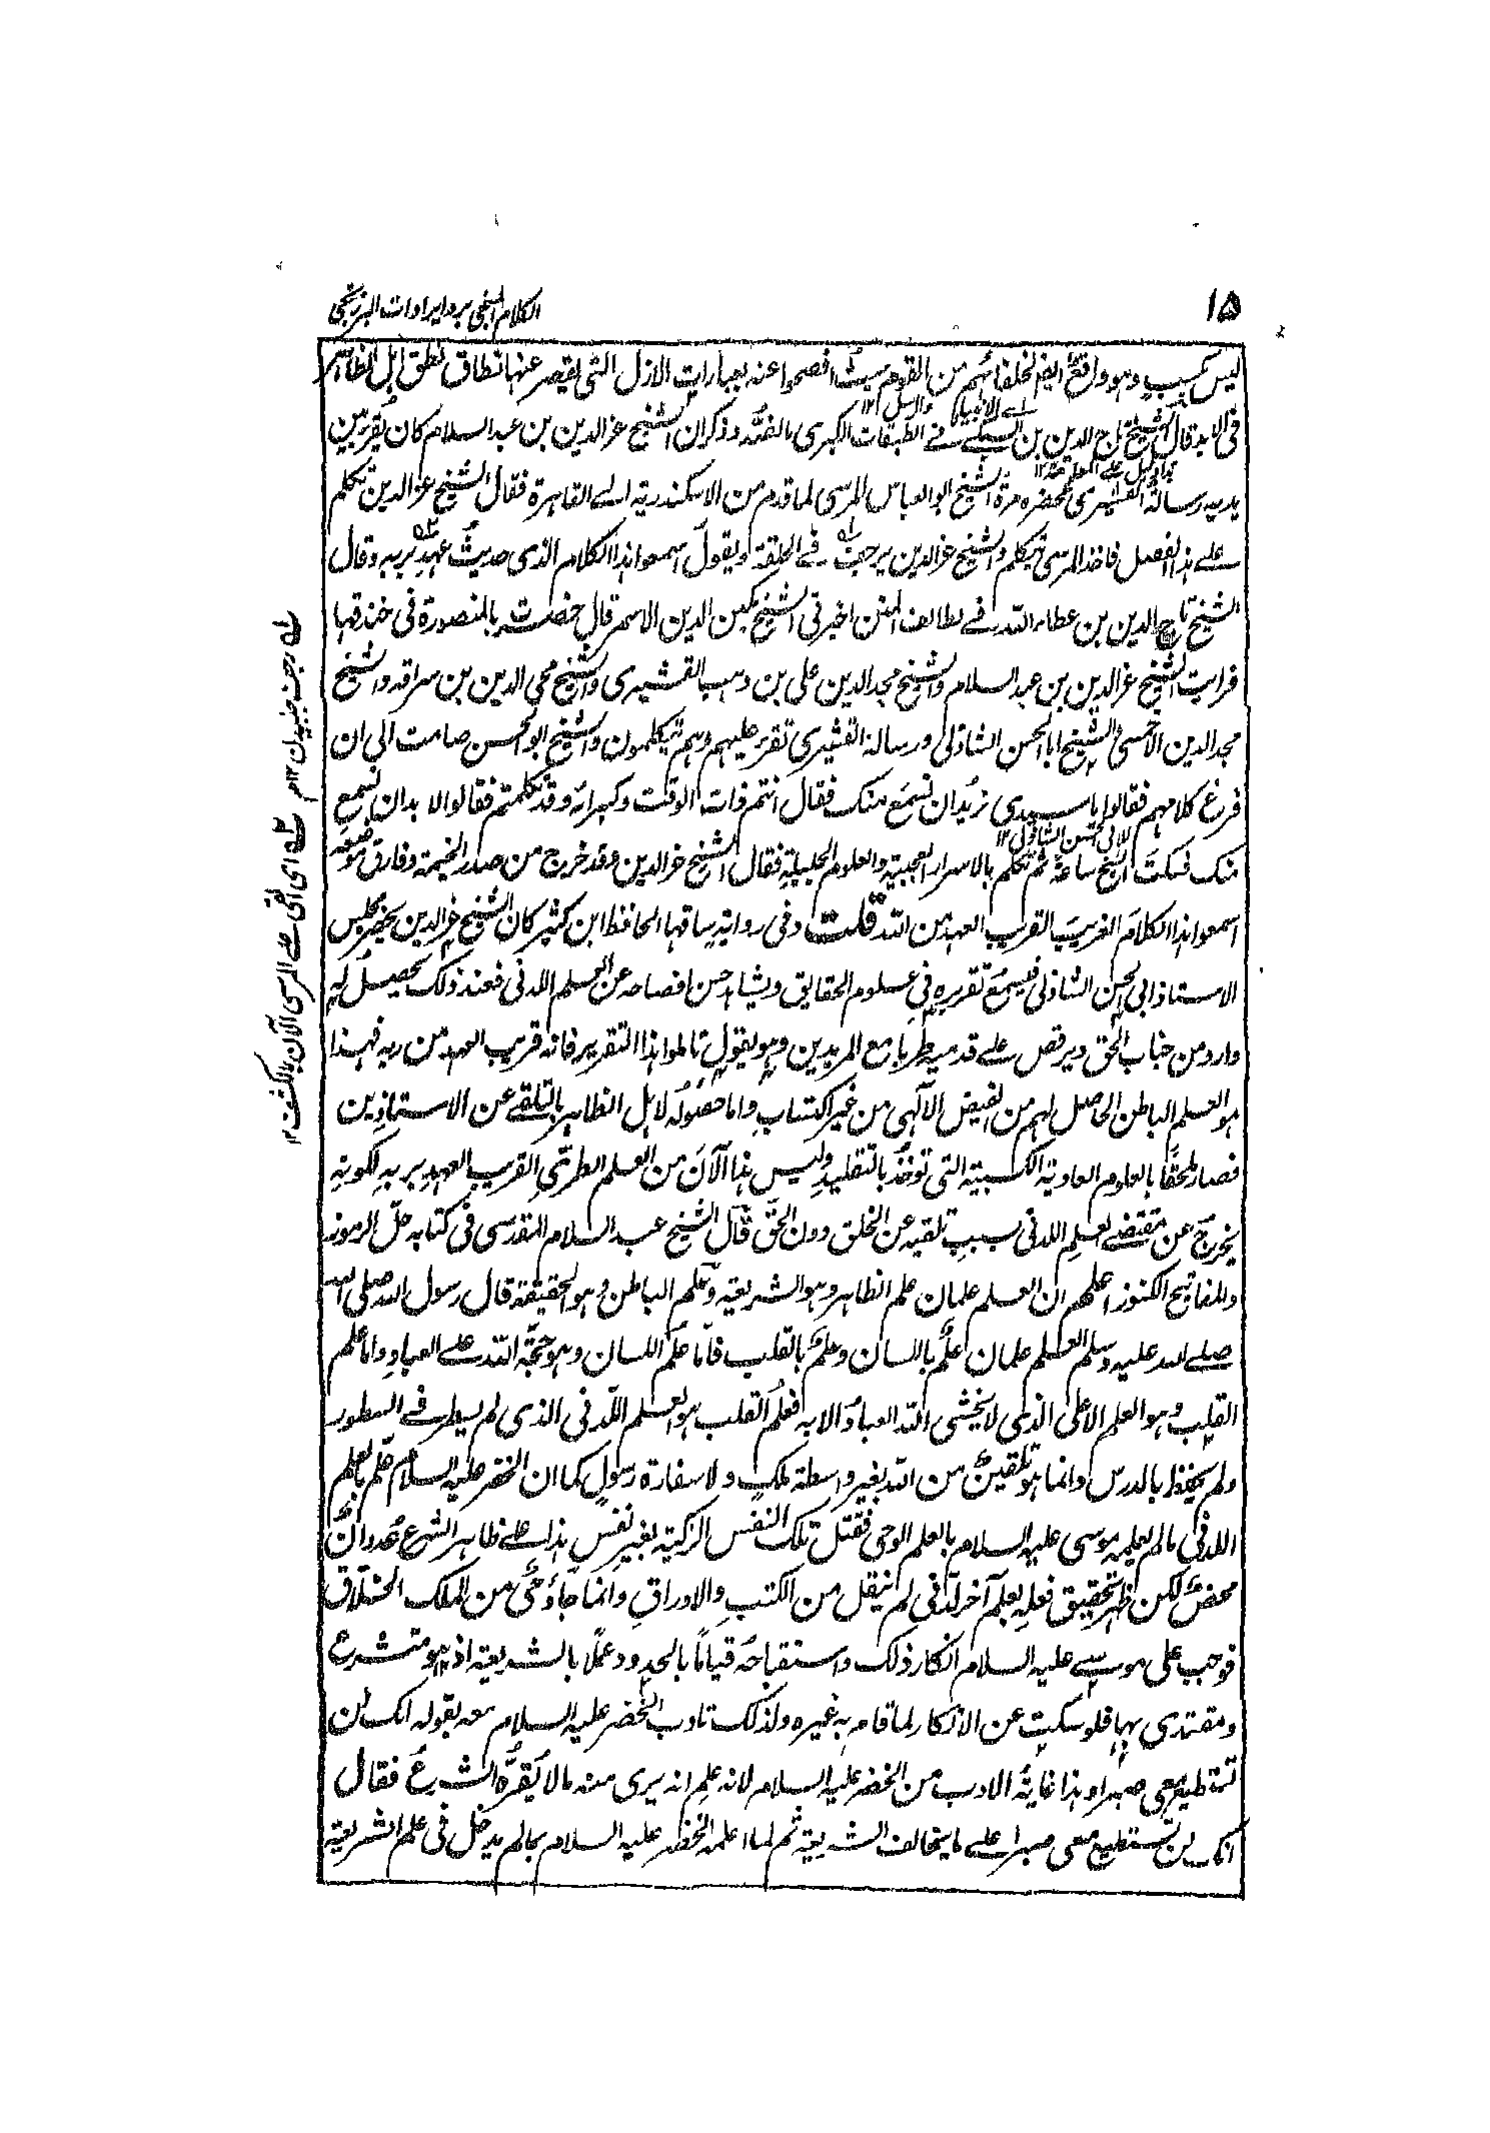 ١٥
الكلام المنجى برد ايرادات البرزنجى
ليس كسب وهو واقع ايضا لخلفائهم من القوم حيث افصحوا عنه بعبارات الازل التى يقصر عنها نطاق نطق اهل الظاهر
اے الانبياء والرسل ١٢
فى الابد قال الشيخ تاج الدين بن السبكے فے الطبقات الكبرى ما نصه وذكر ان الشيخ عز الدين بن عبد السلام كان يقرء بين
يديه رسالة القشيرى فحضره مرة الشيخ ابو العباس المرسى لما قدم من الاسكندرية الے القاهرة فقال الشيخ عز الدين تكلم
علے هذا الفصل فاخذ المرسى يتكلم والشيخ عز الدين يرجف فے الحلقة ويقول اسمعوا هذا الكلام الذى حديث عهد بربه وقال
الشيخ تاج الدين بن عطاء الله فے لطائف المنن اخبرنى الشيخ مكين الدين الاسمر قال حضرت بالمنصورة فى خندقها
فرايت الشيخ عز الدين بن عبد السلام والشيخ مجد الدين على بن وهب القشيرى والشيخ محى الدين بن سراقه والشيخ
مجد الدين الاخمسى والشيخ ابا الحسن الشاذلى ورسالة القشيرى تقرء عليهم وهم يتكلمون والشيخ ابو الحسن صامت الى ان
فرغ كلامهم فقالوا يا سيدى نريد ان نسمع منك فقال انتم سادات الوقت وكبراءه وقد تكلمتم فقالوا لا بد ان نسمع
لابى الحسن الشاذلى ١٢
منك فسكت الشيخ ساعة ثم تكلم بالاسرار العجيبة والعلوم الجليلة فقال الشيخ عز الدين وقد خرج من صدر الخيمة وفارق موضعه
اسمعوا هذا الكلام الغريب القريب العهد من الله قلت وفى رواية ساقها الحافظ ابن كثير كان الشيخ عز الدين يحضر مجلس
الاستاذ ابى الحسن الشاذلى فيسمع تقريره فى علوم الحقايق ويشاهد حسن افصاحه عن العلم اللدنى فعند ذلك يحصل له
وارد من جناب الحق ويرقص علے قدميه طربا مع المريدين وهو يقول تاملوا هذا التقرير فانه قريب العهد من ربه فهذا
هو العلم الباطن الحاصل لهم من الفيض الآلهى من غير اكتساب واما حصوله لاهل الظاهر بالتلقے عن الاستاذين
فصار ملحقا بالعلوم العادية الكسبية التى توخذ بالتقليد وليس هذا الآن من العلم الطرى القريب العهد بربه لكونه
يخرج عن مقتضے العلم اللدنى بسبب تلقيه عن الخلق دون الحق قال الشيخ عبد السلام المقدسى فى كتابه حل الرموز
والمفاتيح الكنوز اعلم ان العلم علمان علم الظاهر وهو الشريعة وعلم الباطن وهو الحقيقة قال رسول الله صلى الله
صلے الله عليه وسلم العلم علمان علم باللسان وعلم بالقلب فاما علم اللسان وهو حجة الله علے العباد واما علم
القلب وهو العلم الاعلى الذى لا يخشى الله العباد الا به فعلم القلب هو العلم اللدنى الذى لم يسطر فے السطور
ولم يحفظ بالدرس وانما هو تلقين من الله بغير واسطة ملك ولا سفارة رسول كما ان الخضر عليه السلام علم بالعلم
اللدنى ما لم يعلمه موسى عليه السلام بالعلم الوحى فقتل تلك النفس الزكية بغير نفس هذا علے ظاهر الشرع عدوان
محض لكن ظهر تحقيق فعله بعلم آخر لدنى لم ينقل من الكتب والاوراق وانما جاء وحى من الملك الخلاق
فوجب على موسے عليه السلام انكار ذلك واستقباحه قياما بالحدود وعملا بالشريعة اذ هو متشرع
ومقتدى بها فلو سكت عن الانكار لما قام به غيره ولذلك تادب الخضر عليه السلام معه بقوله انك لن
تستطيع معى صبرا وهذا غاية الادب من الخضر عليه السلام لانه علم انه يرى منه ما لا يقره الشرع فقال
انك لن تستطيع معى صبرا علے ما يخالف الشريعة ثم لما اعلمه الخضر عليه السلام بما لم يدخل فى علم الشريعة
لہ رجف جنبيدن ١٢ م
لہ اى القى علے المرسى الآن بالكشف ١٢